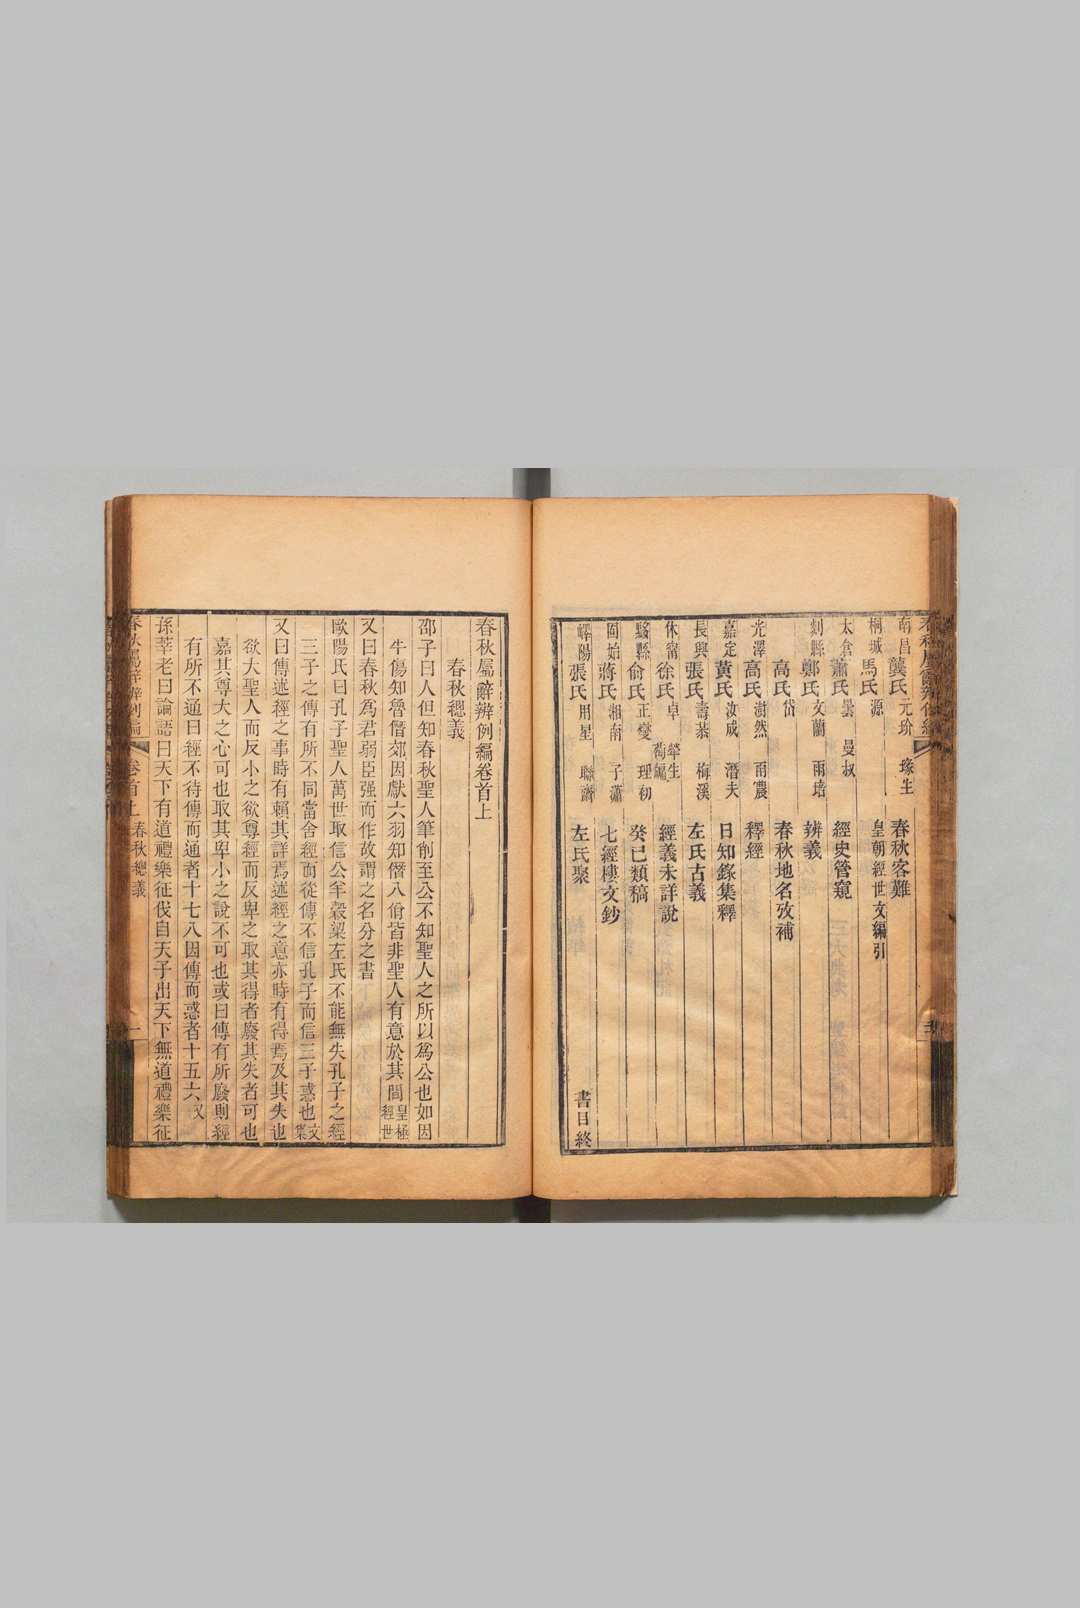 南昌龔氏元玠 瑑生 春秋客難
桐城馬氏源 皇朝經世文編引
太倉蕭氏曇 曼叔 經史管窺
剡縣鄭氏文蘭 雨培 辨義
高氏岱 春秋地名攷補
光澤高氏澍然 雨農 釋經
嘉定黃氏汝成 潛夫 日知錄集釋
長興張氏壽恭 梅溪 左氏古義
休甯徐氏卓 犖生 蔔編 經義未詳說
黟縣俞氏正燮 理初 癸巳類稿
固始蔣氏湘南 子瀟 七經樓文鈔
嶧陽張氏用星 聯濟 左氏聚
書目終
春秋屬辭辨例編卷首上
春秋總義
邵子曰人但知春秋聖人筆削至公不知聖人之所以為公也如因
牛傷知魯僭郊因獻六羽知僭八佾皆非聖人有意於其間皇極經世
又曰春秋為君弱臣强而作故謂之名分之書
歐陽氏曰孔子聖人萬世取信公羊穀梁左氏不能無失孔子之經
三子之傳有所不同當舍經而從傳不信孔子而信三子惑也文集
又曰傳述經之事時有賴其詳焉述經之意亦時有得焉及其失也
欲大聖人而反小之欲尊經而反卑之取其得者廢其失者可也
嘉其尊大之心可也取其卑小之說不可也或曰傳有所廢則經
有所不通曰經不待傳而通者十七八因傳而惑者十五六又
孫莘老曰論語曰天下有道禮樂征伐自天子出天下無道禮樂征
春秋屬辭辨例編 卷首上 春秋總義 一